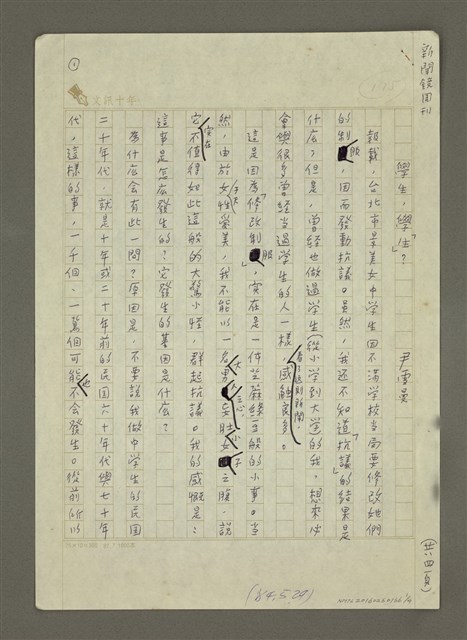 新聞鏡周刊
學生,「學生」?
尹雪曼
(共四頁)
報載,台北市景美女中學生因不滿學校當局要修改她們
的制服,因而發動抗議。雖然,我還不知道「抗議」的結果是
什麼?但是,曾經也做過學生(從小學到大學的我,想來必
會與很多曾經當過學生的人一樣,看了這則新聞,感觸良多。
這是因為「修改制服」,實在是一件芝蔴綠豆般的小事。當
然,由於女性天生愛美,我不能以一個大男人之心,去肚女小子之腹,說
它實在不值得如此這般的大驚小怪,群起抗議。我的感慨是:
這事是怎麼發生的?它發生的基因是什麼?
為什麼會有此一問?原因是,不要說我做中學生的民國
二十年代,就是十年或二十年前的民國六十年代與七十年
代,這樣的事,一千個、一萬個可能也不會發生。從前所以
1
文訊十年
(84.5.29)